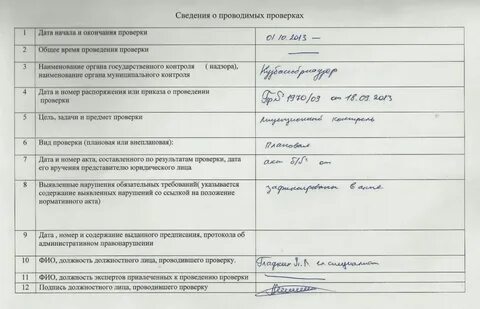 Сведения о проводимых проверках
1 Дата начала и окончания проверки 01.10.2013 –
2 Общее время проведения проверки
3 Наименование органа государственного контроля ( надзора),
наименование органа муниципального контроля
4 Дата и номер распоряжения или приказа о проведении
проверки
№ 1970/03 от 18.09.2013
5 Цель, задачи и предмет проверки лицензионный контроль
6 Вид проверки (плановая или внеплановая): Плановая
7 Дата и номер акта, составленного по результатам проверки, дата
его вручения представителю юридического лица
акт б/б от
8 Выявленные нарушения обязательных требований( указывается
содержание выявленных нарушений со ссылкой на положение
нормативного акта)
зафиксированы в акте
9 Дата , номер и содержание выданного предписания, протокола об
административном правонарушении
10 ФИО, должность должностного лица, проводившего проверку. гл специалист
11 ФИО, должность экспертов привлеченных к проведению проверки
12 Подпись должностного лица, проводившего проверку